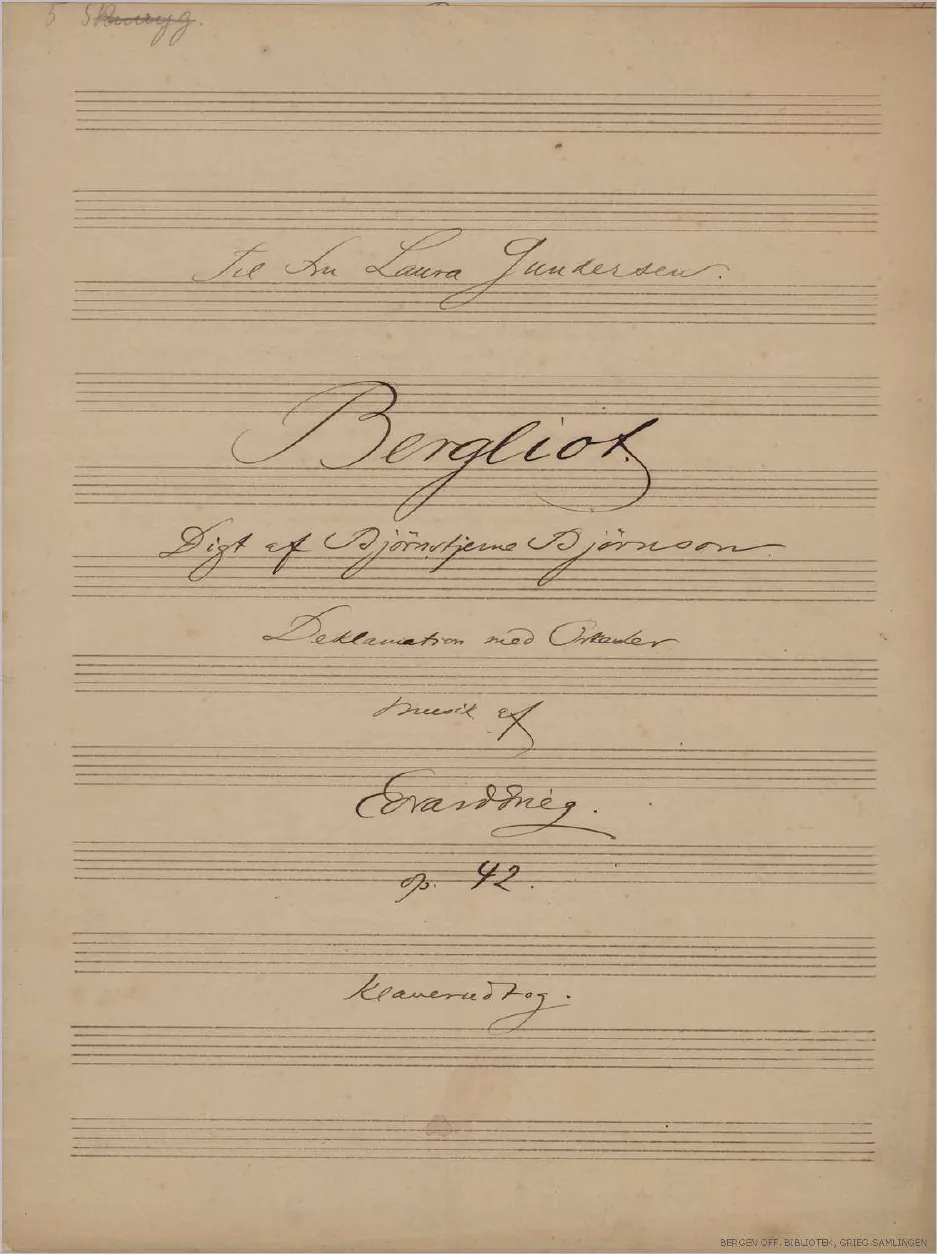 5
Til Fru Laura Gundersen.
Bergliot.
Digt af Björnstjerne Björnson
Deklamation med Orkester
Musik af
Edvard Grieg.
op. 42.
Klaverudtog.
BERGEN OFF. BIBLIOTEK, GRIEG-SAMLINGEN